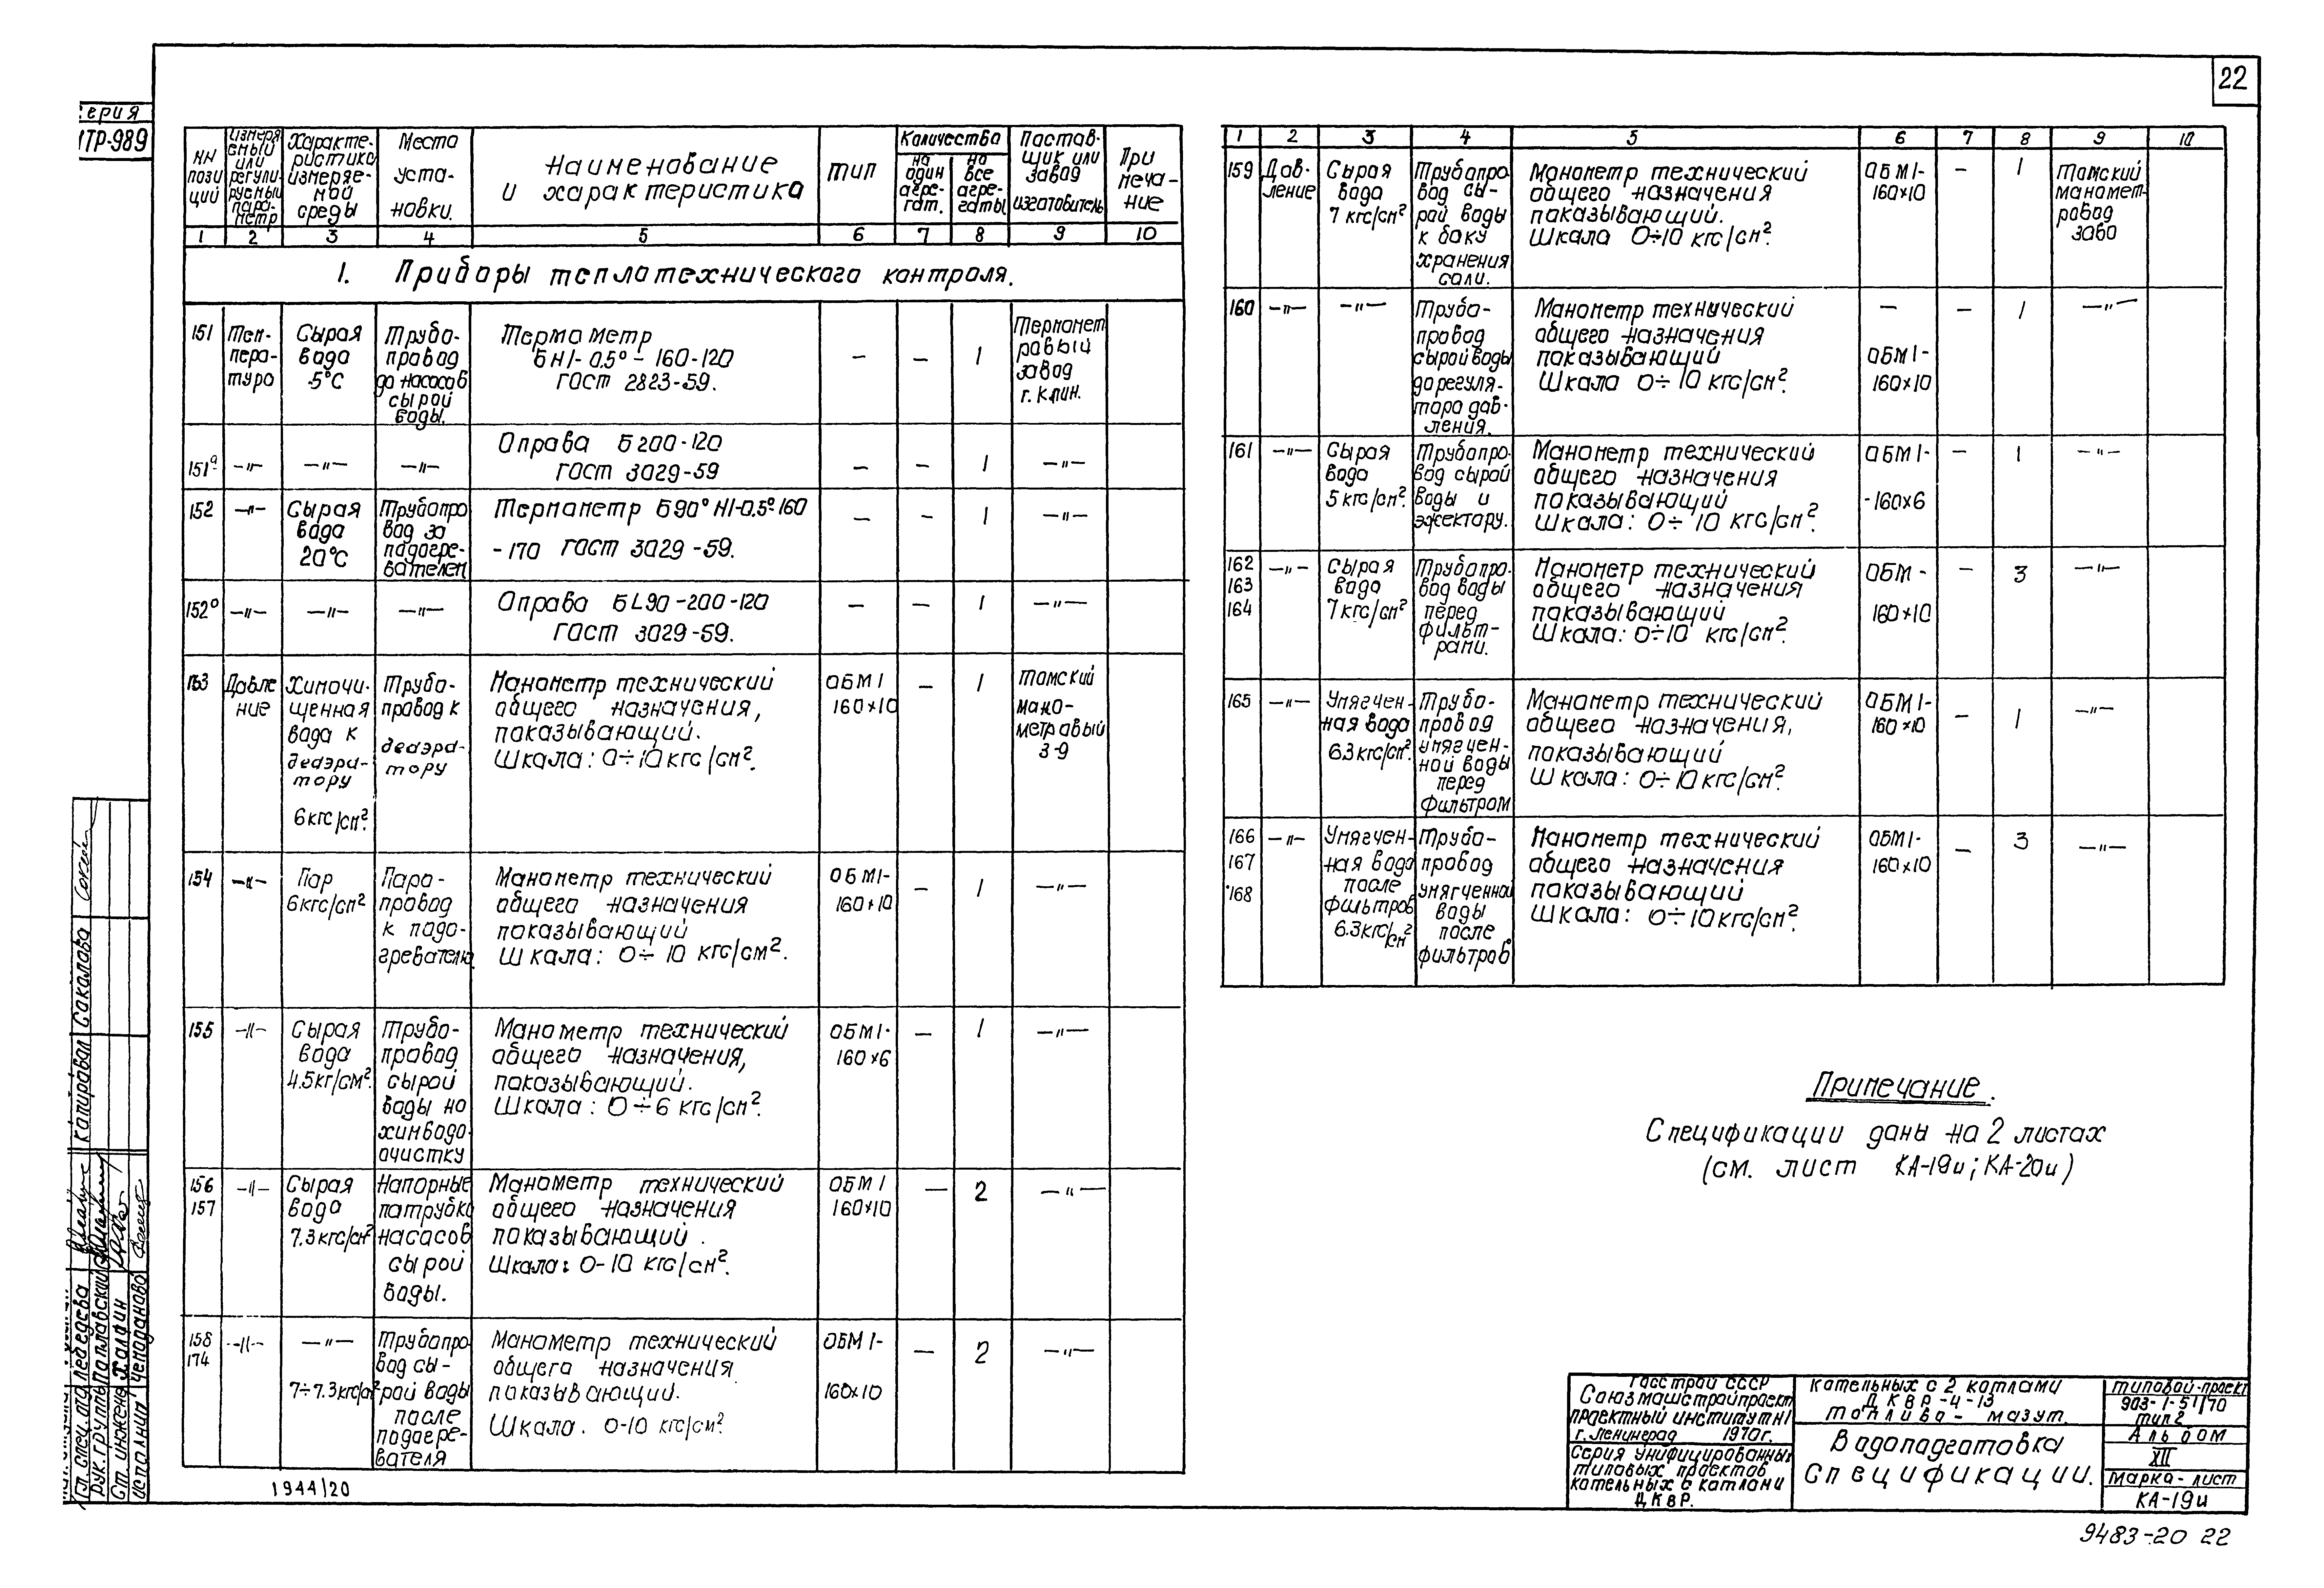 22
серия
ТР-989
NN позиций | Измеряемый или регулируемый параметр | Характеристика измеряемой среды | Место установки. | Наименование и характеристика | Тип | Количество на один агрегат. | Количество на все агрегаты | Поставщик или завод изготовитель | Примечание
1 2 3 4 5 6 7 8 9 10
1. Приборы теплотехнического контроля.
151 Тем- Сырая Трубо- Термометр — — 1 Термомет
пера- вода провод БН1-0.5° - 160-120 ровый
тура -5°С до насосов ГОСТ 2823-59. завод
сырой г. Клин.
воды.
Оправа Б200-120
151а —"— —"— —"— ГОСТ 3029-59 — — 1 —"—
152 —"— Сырая Трубопро Термометр Б90° Н1-0.5°-160 — — 1 —"—
вода вод за -170 ГОСТ 3029-59.
20°С подогре-
вателем
152а —"— —"— —"— Оправа БL90-200-120 — — 1 —"—
ГОСТ 3029-59.
153 Давле Химочи- Трубо- Манометр технический ОБМ1 — 1 Томский
ние щенная провод к общего назначения, 160×10 мано-
вода к деаэра- показывающий. метровый
деаэра- тору Шкала: 0÷10 кгс/см². з-д
тору
6кгс/см².
154 —"— Пар Паро- Манометр технический ОБМ1- — 1 —"—
6кгс/см² провод общего назначения 160×10
к подо- показывающий
гревателю. Шкала: 0÷10 кгс/см².
155 —"— Сырая Трубо- Манометр технический ОБМ1- — 1 —"—
вода провод общего назначения, 160×6
4.5кг/см². сырой показывающий.
воды на Шкала: 0÷6 кгс/см².
химводо-
очистку
156 —"— Сырая Напорные Манометр технический ОБМ1 — 2 —"—
157 вода патрубки общего назначения 160×10
7.3кгс/см² насосов показывающий.
сырой Шкала: 0-10 кгс/см².
воды.
158 —"— —"— Трубопро- Манометр технический ОБМ1- — 2 —"—
174 вод сы- общего назначения
7÷7.3кгс/см² рой воды показывающий. 160×10
после Шкала. 0-10 кгс/см².
подогре-
вателя
1944/20
1 2 3 4 5 6 7 8 9 10
159 Дав- Сырая Трубопро Манометр технический ОБМ1- — 1 Томский
ление вода вод сы- общего назначения 160×10 манамет-
7 кгс/см² рой воды показывающий. ровод
к баку Шкала 0÷10 кгс/см². заво
хранения
соли.
160 —"— —"— Трубо- Манометр технический — — 1 —"—
провод общего назначения
сырой воды показывающий ОБМ1-
до регуля- Шкала 0÷10 кгс/см². 160×10
тора дав-
ления.
161 —"— Сырая Трубопро- Манометр технический ОБМ1- — 1 —"—
вода вод сырой общего назначения
5кгс/см². воды и показывающий -160×6
эжектору. Шкала: 0÷10 кгс/см².
162 —"— Сырая Трубопро- Манометр технический ОБМ- — 3 —"—
163 вода вод воды общего назначения
164 7кгс/см² перед показывающий 160×10
фильт- Шкала: 0÷10 кгс/см².
рами.
165 —"— Умягчен- Трубо- Манометр технический ОБМ1- — 1 —"—
ная вода провод общего назначения, 160×10
6.3кгс/см². умягчен- показывающий
ной воды Шкала: 0÷10кгс/см².
перед
фильтром
166 —"— Умягчен- Трубо- Манометр технический ОБМ1- — 3 —"—
167 ная вода провод общего назначения 160×10
168 после умягченной показывающий
фильтров воды Шкала: 0÷10кгс/см².
6.3кгс/см² после
фильтров
Примечание.
Спецификации даны на 2 листах
(см. лист КА-19и; КА-20и)
Госстрой СССР
Союзмашстройпроект
проектный институт N1
г. Ленинград 1970г.
Серия унифицированных
типовых проектов
котельных с котлами
ДКВР.
Котельных с 2 котлами
ДКВР-4-13
топливо - мазут.
Водоподготовка
Спецификации.
типовой-проект
903-1-51/70
тип 2
Альбом
XII
Марка-лист
КА-19и
9483-20 22
Копировал Соколова
Гл. спец. отд. Лебедева
Рук. группы Поплавский
Ст. инженер Халфин
Исполнил Чемоданова